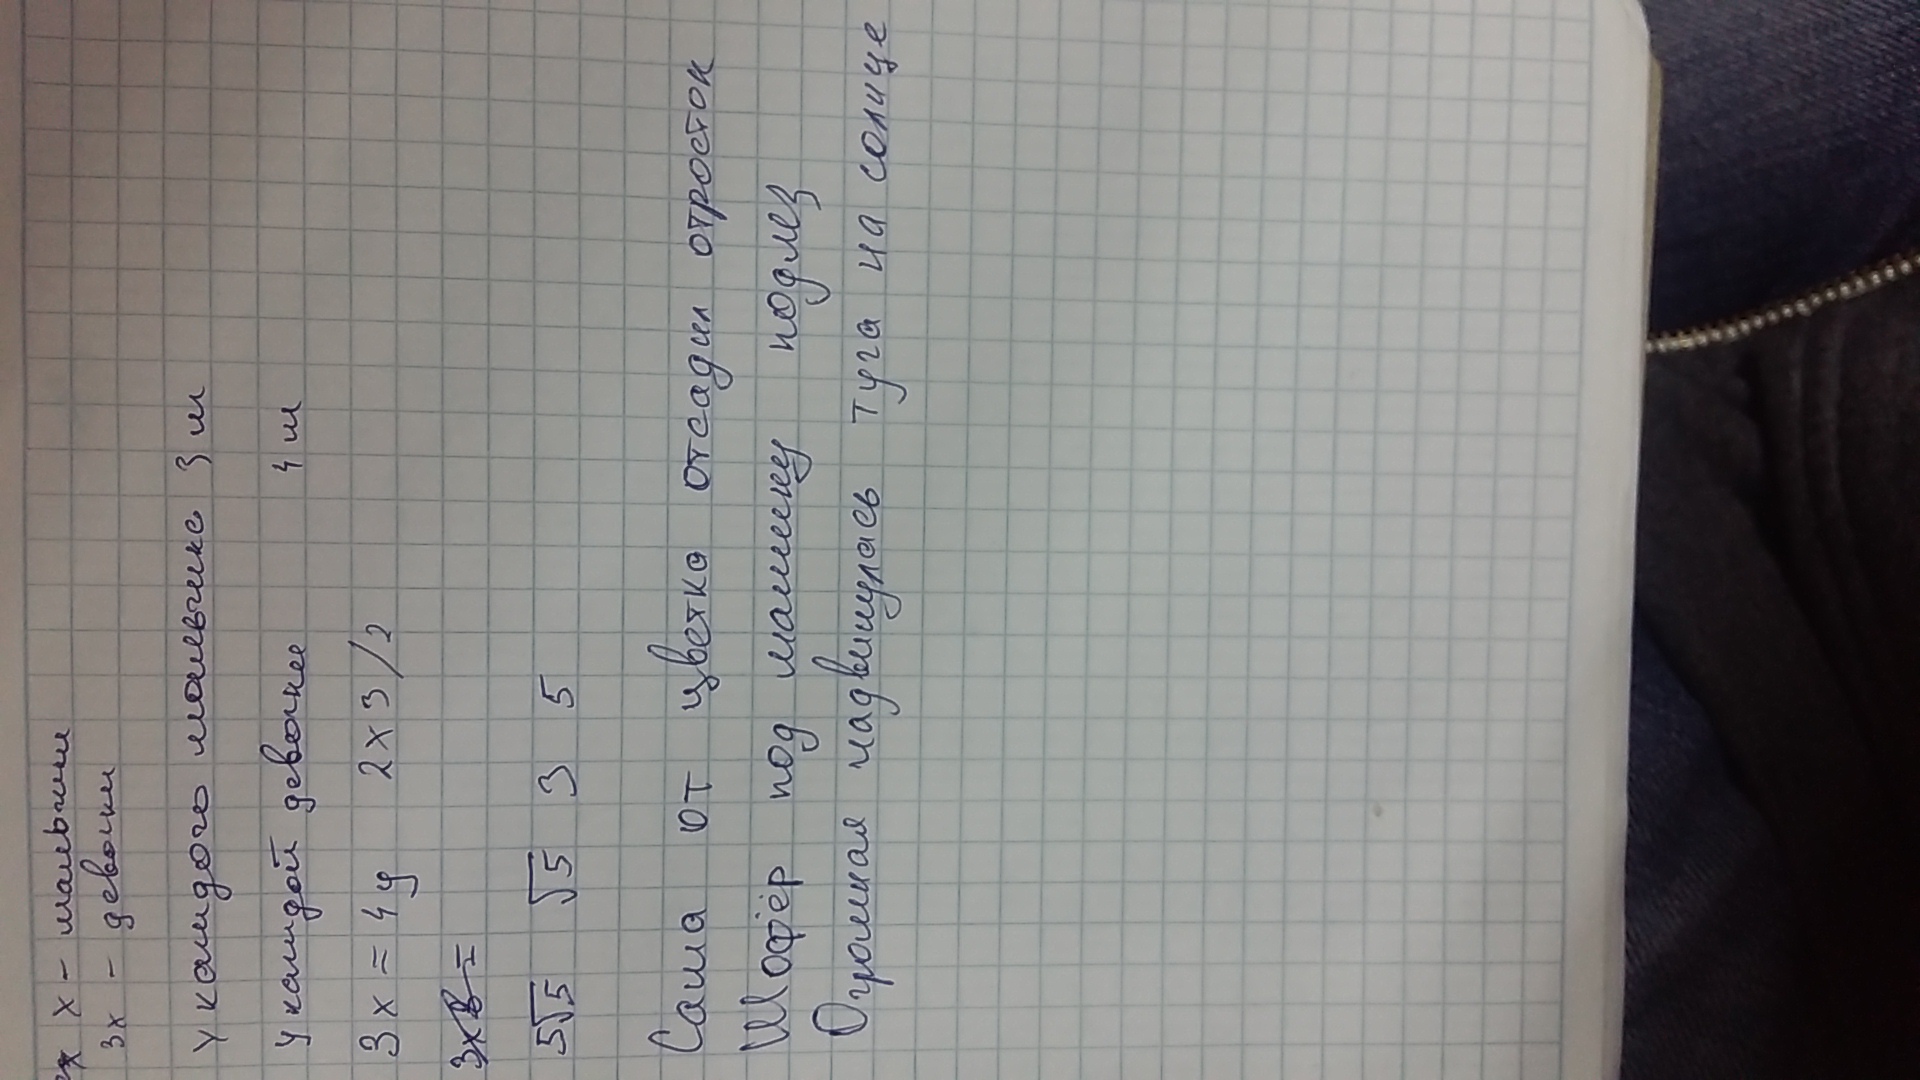 х - мальчики
3х - девочки
У каждого мальчика 3 м
У каждой девочки 4 м
3х = 4у 2х3/2
5√5 √5 3 5
Саша от цветка отсадил отросток
Шофёр под машину подлез
Огромная надвинулась туча на солнце